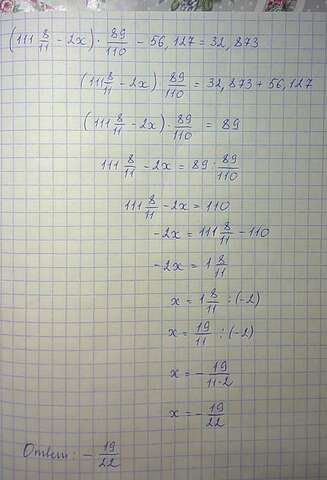 (111 8/11 - 2x) · 89/110 - 56,127 = 32,873
(111 8/11 - 2x) 89/110 = 32,873 + 56,127
(111 8/11 - 2x) · 89/110 = 89
111 8/11 - 2x = 89 : 89/110
111 8/11 - 2x = 110
-2x = 111 8/11 - 110
-2x = 1 8/11
x = 1 8/11 : (-2)
x = 19/11 : (-2)
x = - 19/11·2
x = - 19/22
Ответ: - 19/22